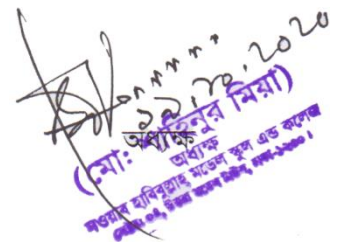 ১৯.১০.২০২০
অধ্যক্ষ
(মো: শাহিনুর মিয়া)
অধ্যক্ষ
নওয়াব হাবিবুল্লাহ মডেল স্কুল এন্ড কলেজ